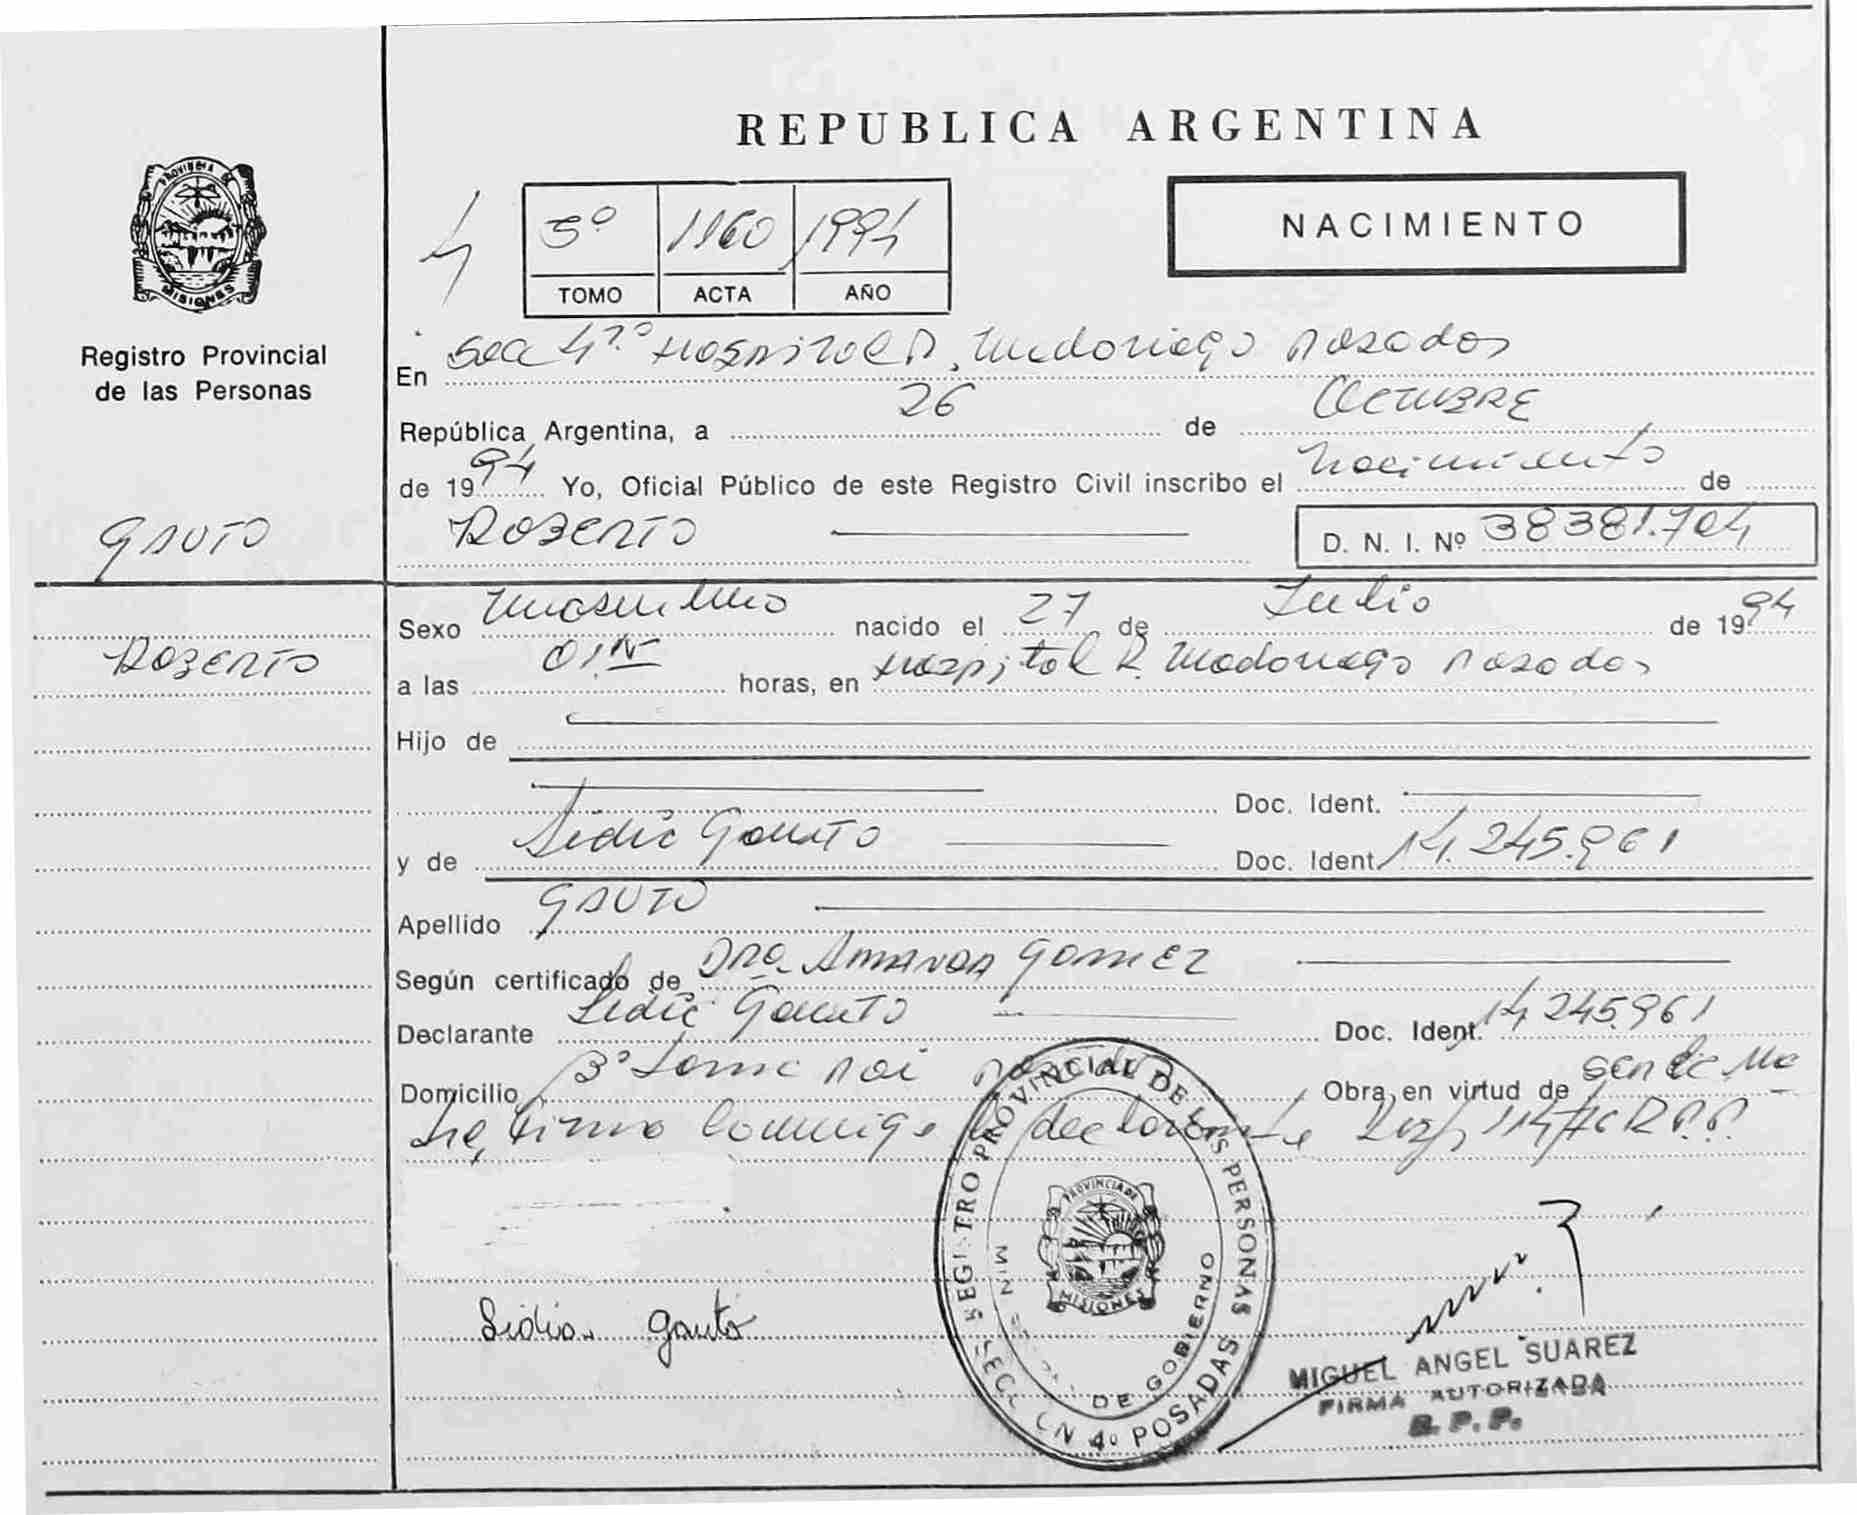 REPUBLICA ARGENTINA
PROVINCIA DE
MISIONES
Registro Provincial
de las Personas
4
3º 1160 1994
TOMO ACTA AÑO
NACIMIENTO
En Sec 4º Hospital R. Madariaga Posadas
República Argentina, a 26 de Octubre
de 1994 Yo, Oficial Público de este Registro Civil inscribo el nacimiento de
Roberto D. N. I. Nº 38381.704
GAUTO
Roberto
Sexo Masculino nacido el 27 de Julio de 1994
a las horas, en Hospital R. Madariaga Posadas
Hijo de
Doc. Ident.
y de Lidia Gauto Doc. Ident. 14.245.961
Apellido GAUTO
Según certificado de Dra. Amanda Gomez
Declarante Lidia Gauto Doc. Ident. 14.245.961
Domicilio Obra en virtud de
firma conmigo la declarante
REGISTRO PROVINCIAL DE LAS PERSONAS
SECCION 4º POSADAS
DE GOBIERNO
PROVINCIA DE
MISIONES
Lidia Gauto
MIGUEL ANGEL SUAREZ
FIRMA AUTORIZADA
R. P. P.